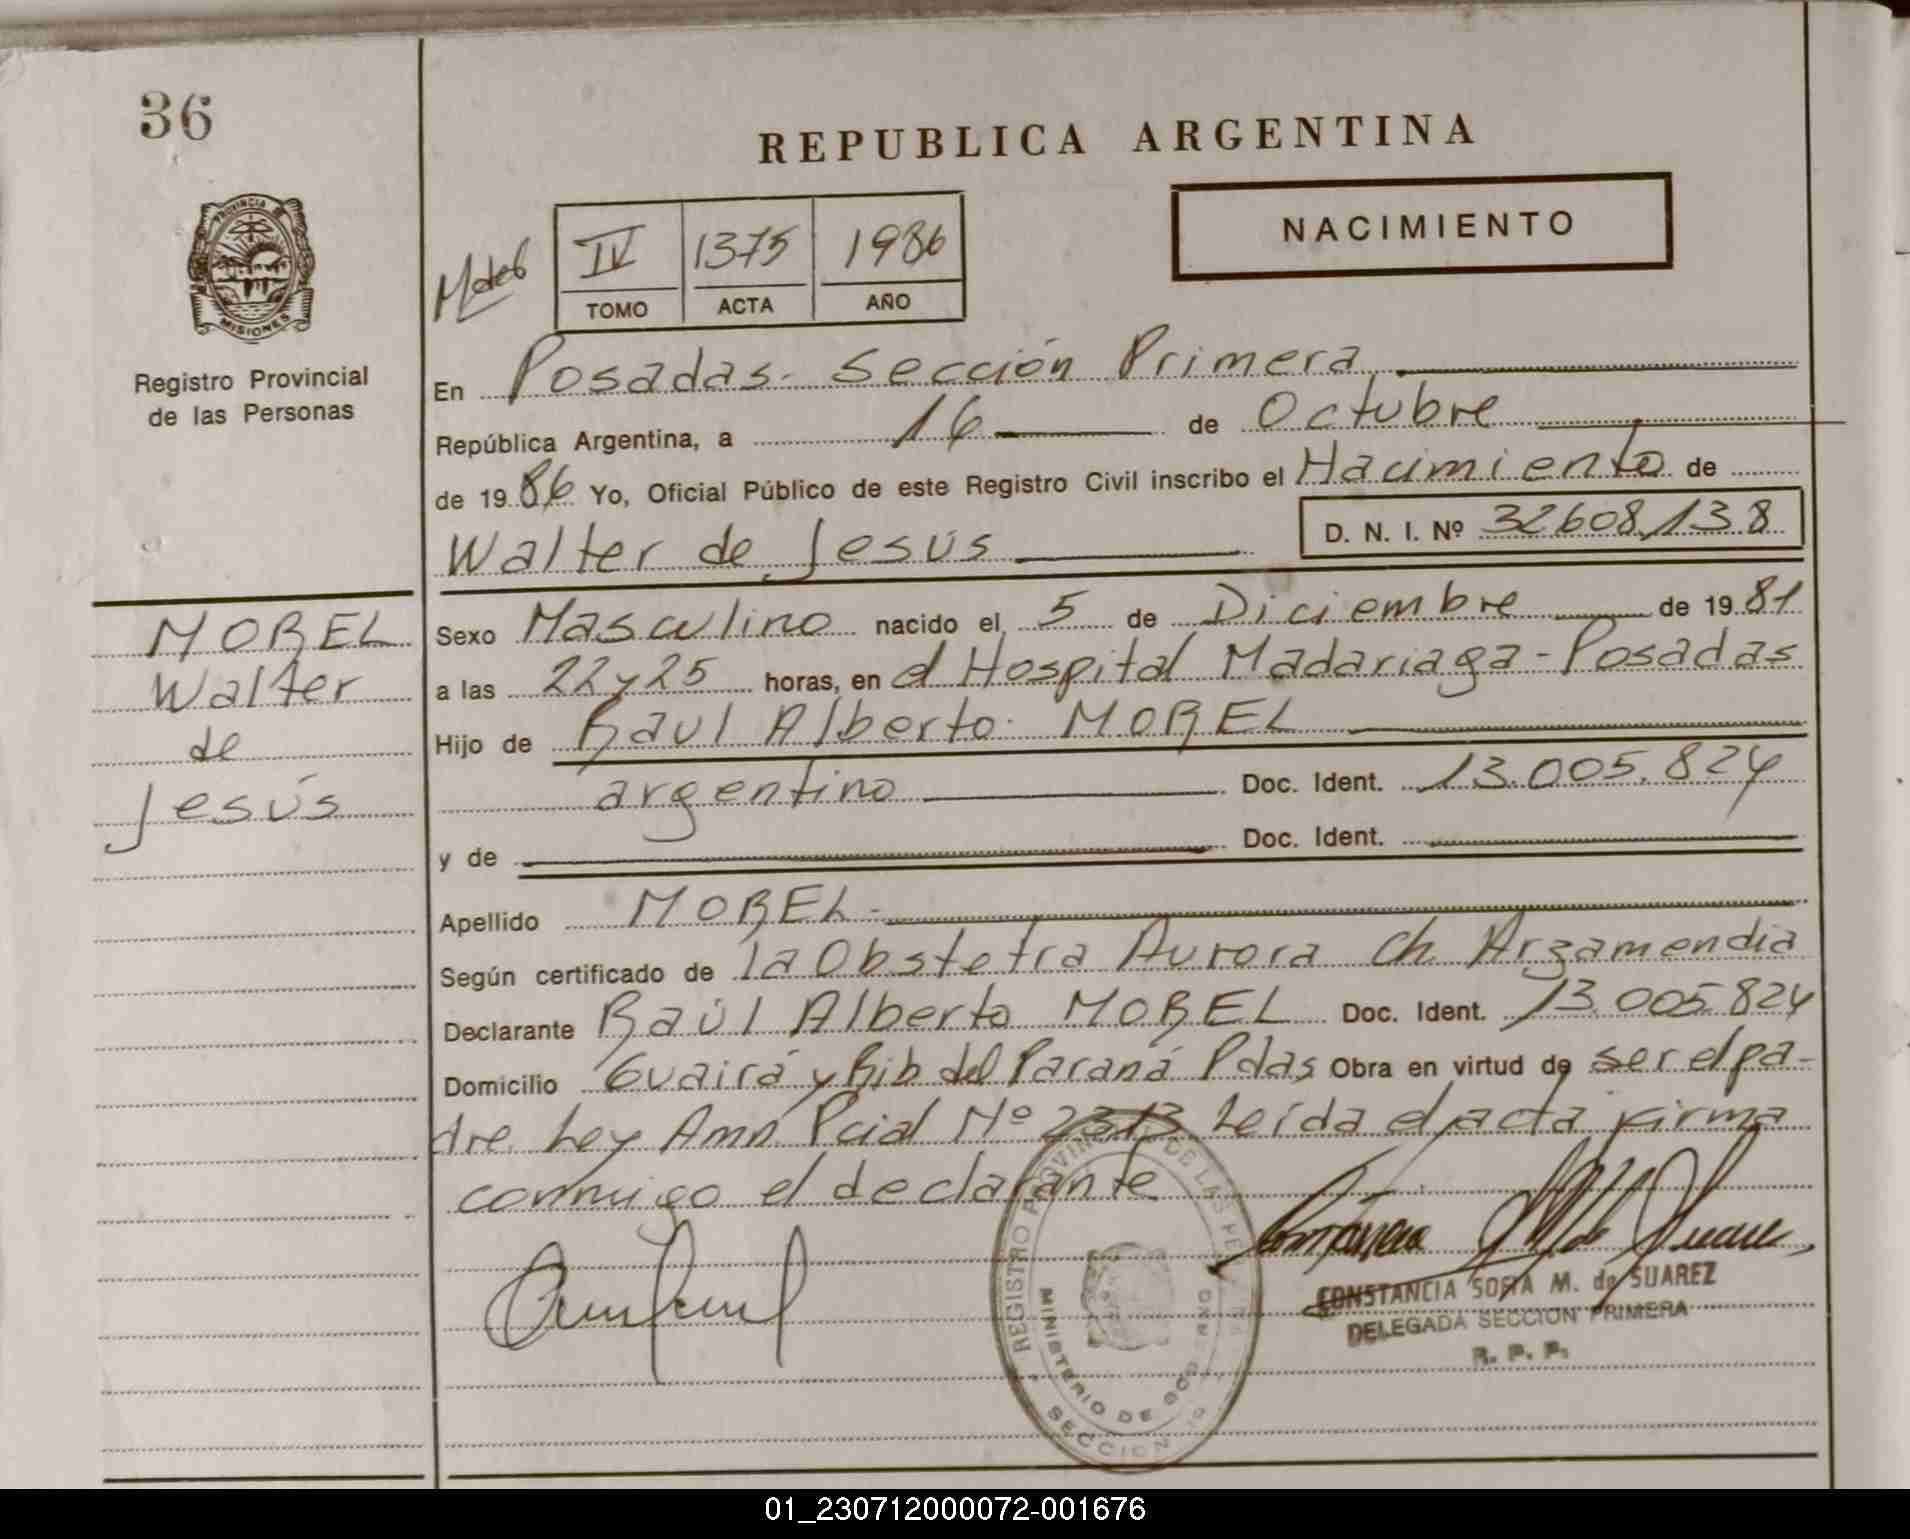 36
REPUBLICA ARGENTINA
NACIMIENTO
IV 1375 1986
TOMO ACTA AÑO
PROVINCIA DE
MISIONES
Registro Provincial
de las Personas
En Posadas. Sección Primera
República Argentina, a 16 de Octubre
de 1986 Yo, Oficial Público de este Registro Civil inscribo el Nacimiento de
Walter de Jesús D. N. I. Nº 32608.138
MOREL
Walter
de
Jesús
Sexo Masculino nacido el 5 de Diciembre de 1981
a las 22 y 25 horas, en el Hospital Madariaga - Posadas
Hijo de Raul Alberto MOREL
argentino Doc. Ident. 13.005.824
y de Doc. Ident.
Apellido MOREL.-
Según certificado de la Obstetra Aurora Ch. Arzamendia
Declarante Raúl Alberto MOREL Doc. Ident. 13.005.824
Domicilio Guairá y Rib del Paraná Pdas Obra en virtud de ser el pa-
dre. Ley Amn. Pcial Nº 2313 Leída el acta firma
conmigo el declarante
REGISTRO PROVINCIAL DE LAS PERSONAS
MINISTERIO DE GOBIERNO
SECCION
CONSTANCIA SOFIA M. de SUAREZ
DELEGADA SECCION PRIMERA
R. P. P.
01_230712000072-001676